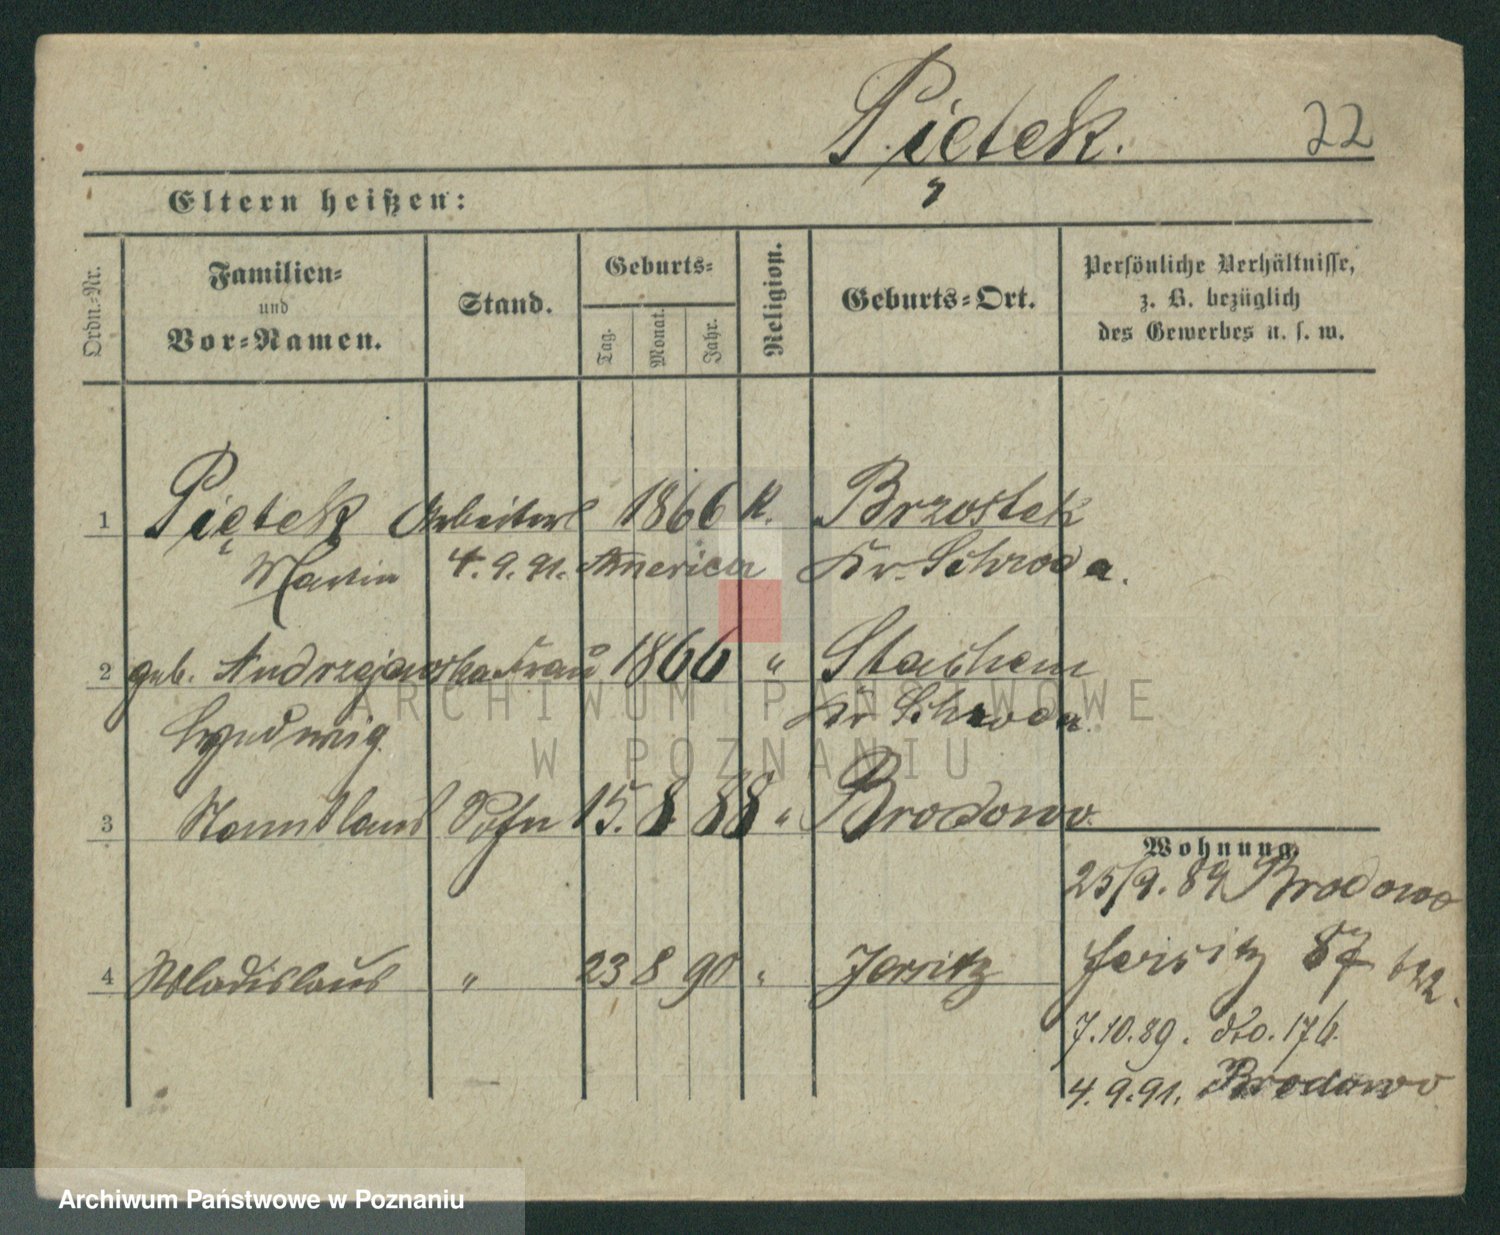 Piętek.
22
Eltern heißen:
Ordn.-Nr.
Familien-
und
Vor-Namen.
Stand.
Geburts-
Tag.
Monat.
Jahr.
Religion.
Geburts-Ort.
Persönliche Verhältnisse,
z. B. bezüglich
des Gewerbes u. s. w.
1 Piętek Arbeiter 1866 K. Brzostek
Martin 4.9.91. America Kr. Schroda.
2 geb. Andrzejewska Frau 1866 " 
Kr Schroda.
3 Sohn 15. 8. 88 " Brodowo.
Wohnung.
25/9. 89 Brodowo
4 Wladislaus " 23 8 90 " Jersitz
Jersitz 57
7.10.89. dto. 176.
4.9.91. Brodowo
ARCHIWUM PAŃSTWOWE
W POZNANIU
Archiwum Państwowe w Poznaniu